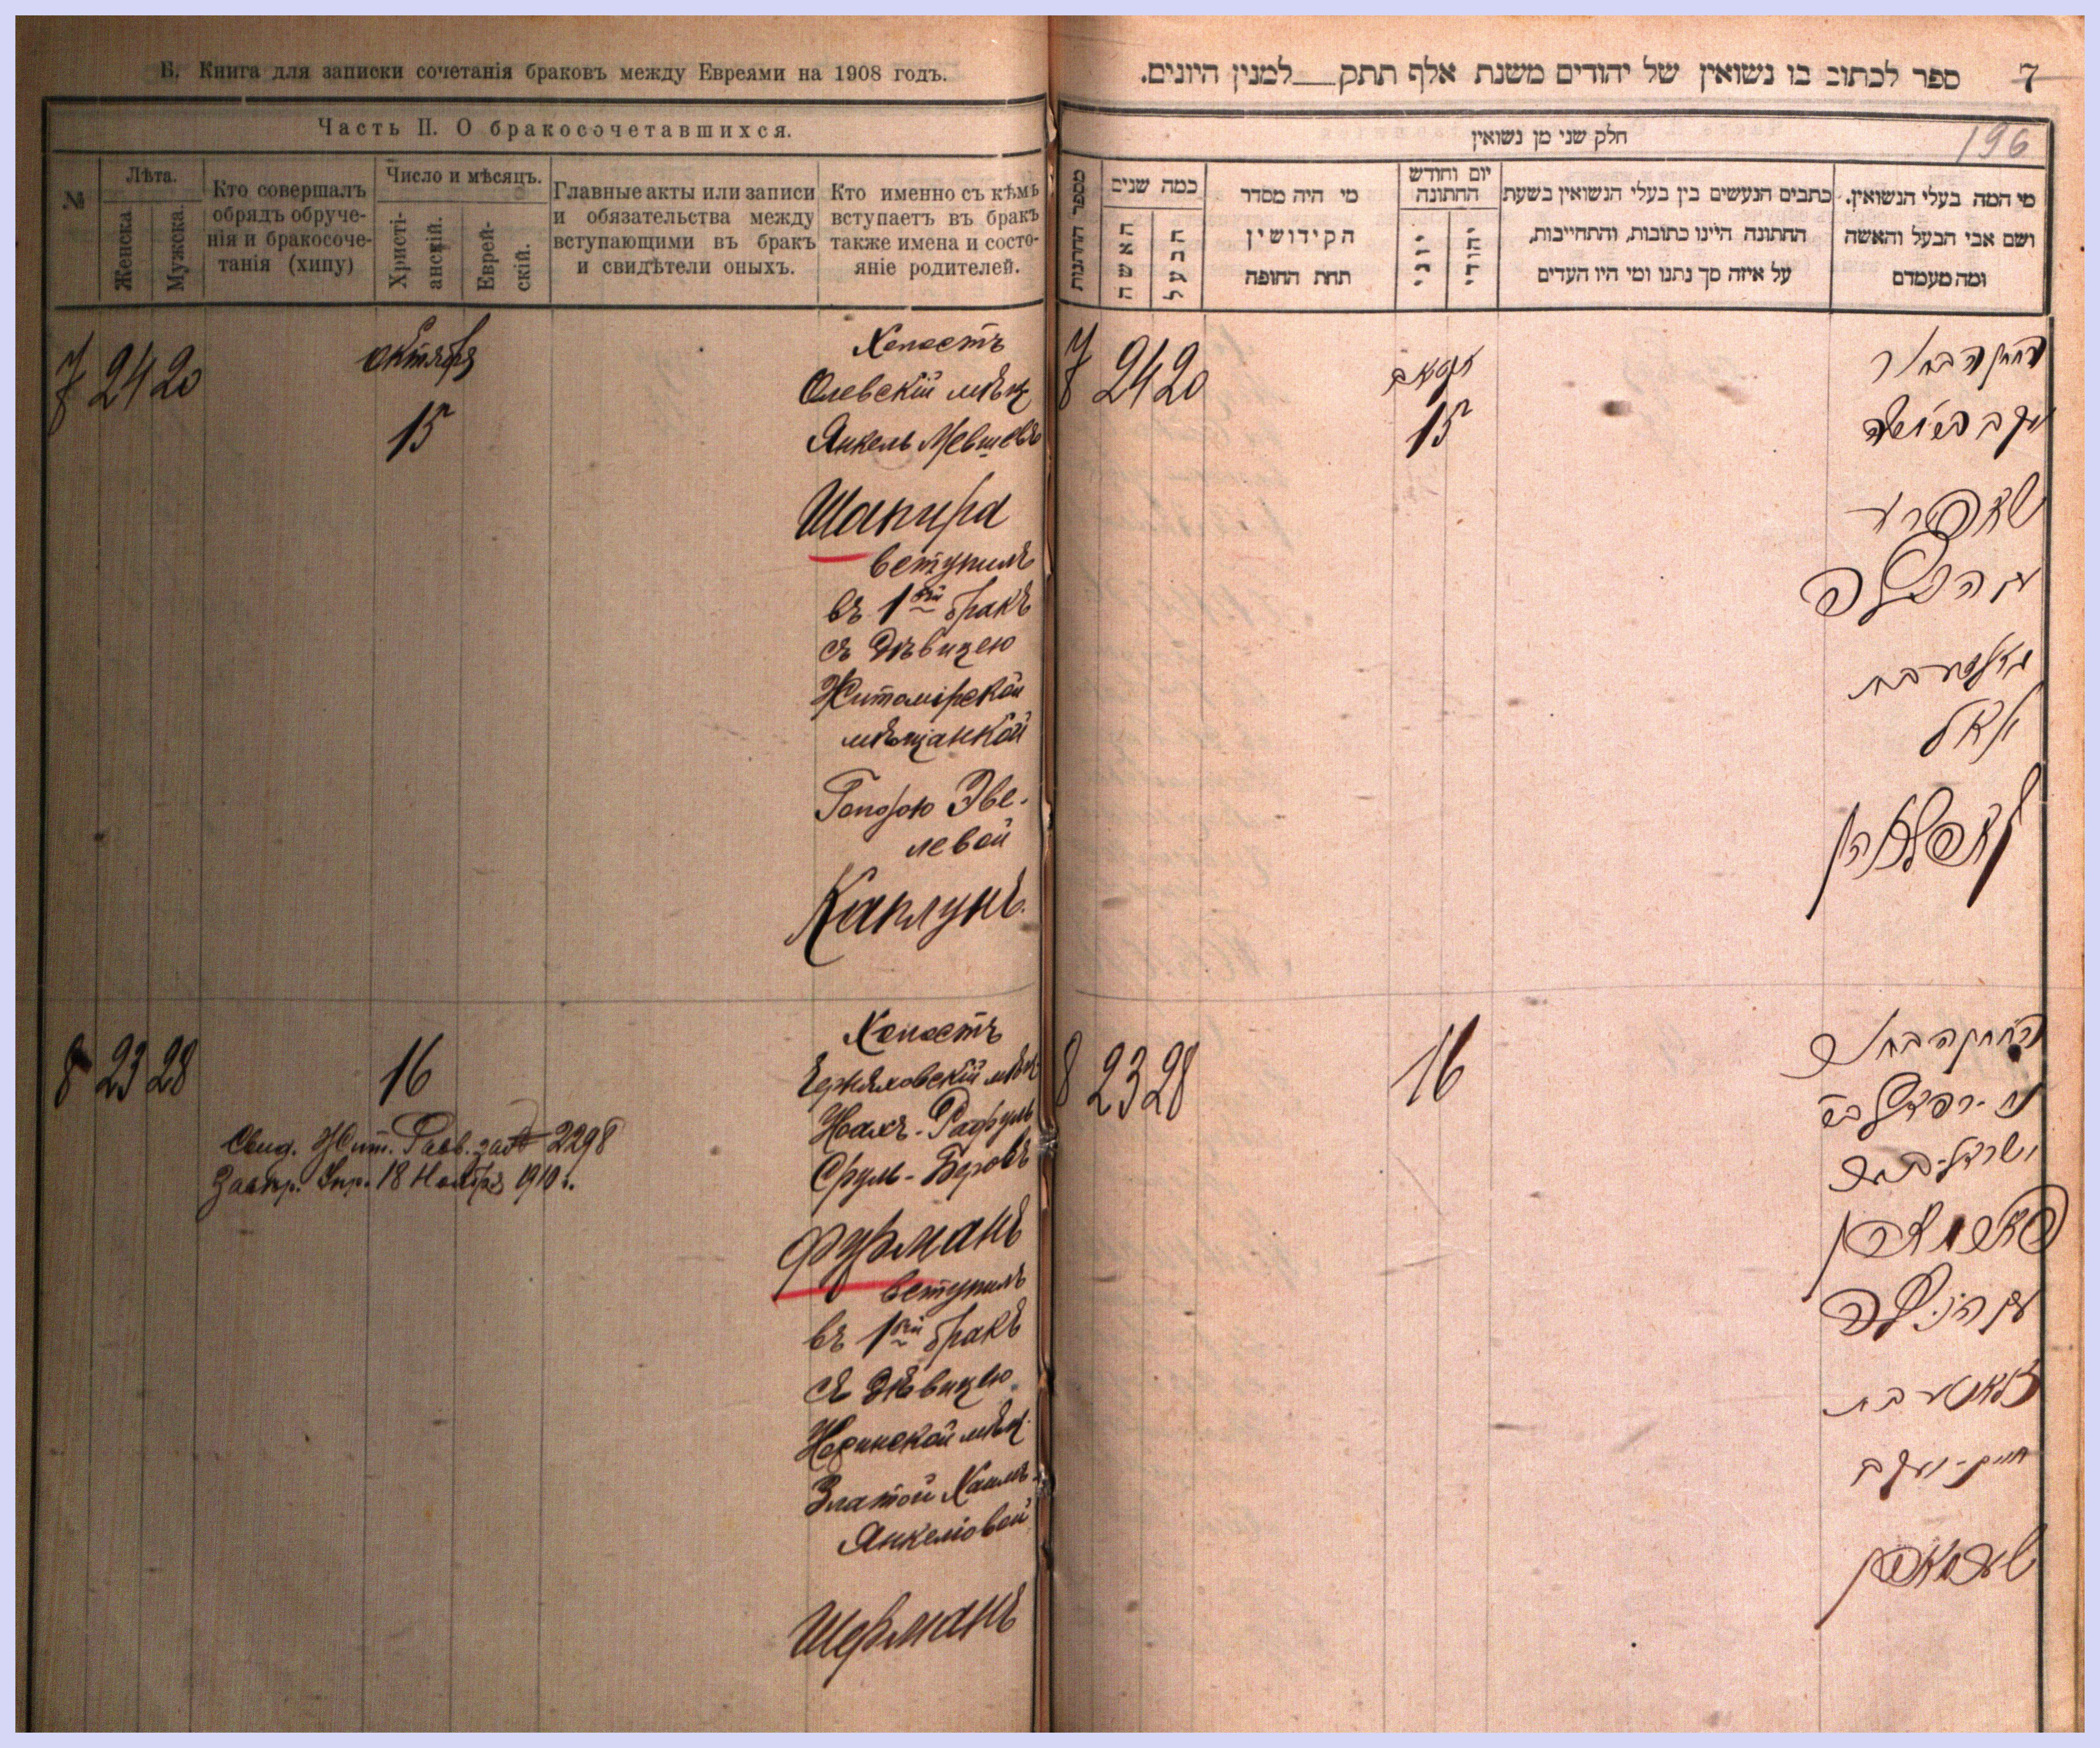 Б. Книга для записки сочетанія браковъ между Евреями на 1908 годъ.
Часть II. О бракосочетавшихся.
№
Лѣта.
Женска
Мужска.
Кто совершалъ
обрядъ обруче-
нія и бракосоче-
танія (хипу)
Число и мѣсяцъ.
Христі-
анскій.
Еврей-
скій.
Главные акты или записи
и обязательства между
вступающими въ бракъ
и свидѣтели оныхъ.
Кто именно съ кѣмъ
вступаетъ въ бракъ
также имена и состо-
яніе родителей.
7 24 20
октября
15
Холостъ
Олевскій мѣщ
Янкель Мевшевъ
Шапира
вступилъ
въ 1ый бракъ
съ дѣвицею
Житомірской
мѣщанкой
Эве-
левой
Каплунъ.
8 23 28
16
Свид. Жит. Равв. за № 2298
18 Ноября 1910 г.
Холостъ
Черняховскій мѣщ
Сруль-Беровъ
Фурманъ
вступилъ
въ 1ый бракъ
съ дѣвицею
Норинской мѣщ.
Златой Хаимъ-
Янкеліовой
Шерманъ
7
ספר לכתוב בו נשואין של יהודים משנת אלף תתק__למנין היונים.
196
חלק שני מן נשואין
מספר החתנות
כמה שנים
האשה
הבעל
מי היה מסדר
הקידושין
תחת החופה
יום וחודש
החתונה
יוני
יהודי
כתבים הנעשים בין בעלי הנשואין בשעת
החתונה היינו כתובות, והתחייבות,
על איזה סך נתנו ומי היו העדים
מי המה בעלי הנשואין.
ושם אבי הבעל והאשה
ומה מעמדם
7 24 20
15
החתן הבחור
שאפירע
עם הבתולה
קאפלאן
8 23 28
16
החתן הבחור
פורמאן
עם הבתולה
זלאטע בת
חיים-יעקב
שערמאן